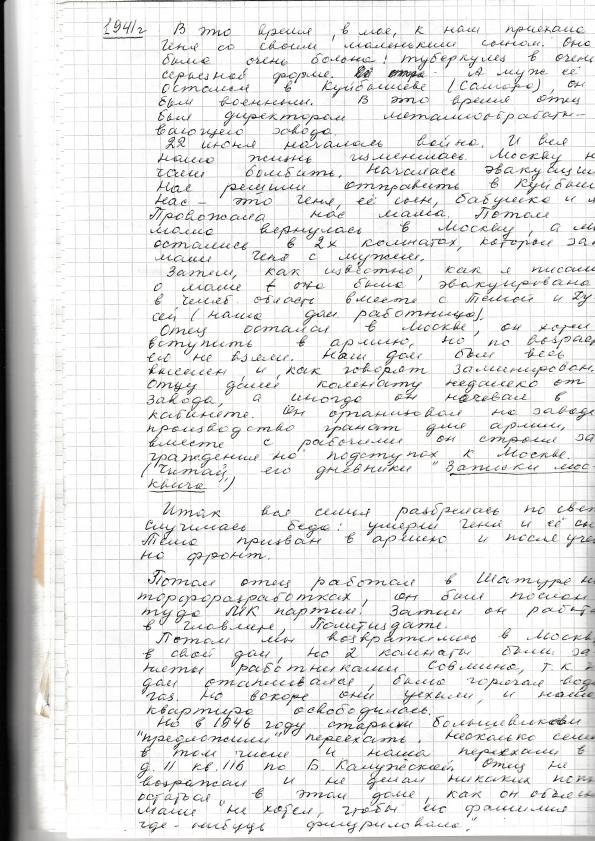 1941г В это время, в мае, к нам приехала
Геня со своим маленьким сыном. Она
была очень больна: туберкулез в очень
серьезной форме. А муж её
остался в Куйбышеве (Самара), он
был военным. В это время отец
был директором металлообрабаты-
вающего завода.
22 июня началась война. И вся
наша жизнь изменилась. Москву н
чали бомбить. Началась эвакуация
Нас решили отправить в Куйбыш
Нас - это Геня, её сын, бабушка и я
Провожала нас мама. Потом
мама вернулась в Москву, а мы
остались в 2х комнатах, которые за
мали Геня с мужем.
Затем, как известно, как я писала
о маме она была эвакуирована
в Челяб область вместе с Тёмой и Ду
сей (наша дом работница).
Отец остался в Москве, он хотел
вступить в армию, но по возрасту
его не взяли. Наш дом был весь
выселен и, как говорят заминирован.
Отцу дали комнату недалеко от
завода, а иногда он ночевал в
кабинете. Он организовал на заводе
производство гранат для армии,
вместе с рабочими он строил за
граждение на подступах к Москве.
(Читай его дневники "Записки мос-
квича")
Итак вся семья разбрелась по свет
Случилась беда: умерли Геня и её сын
Тёма призван в армию и после уче
на фронт.
Потом отец работал в Шатуре на
торфоразработках, он был послан
туда МК партии. Затем он работа
в Главлите, Политиздате.
Потом мы возвратились в Москву
в свой дом, но 2 комнаты были за
няты работниками Совмина, т.к.
дом отапливался, была горячая вода
газ. Но вскоре они уехали, и наша
квартира освободилась.
Но в 1946 году старым большевикам
"предложили" переехать. Несколько семей
в том числе и наша переехали в
д. 11 кв. 116 по Б. Калужской. Отец не
возражал и не делал никаких поп
остаться в этом доме, как он объясн
маме "не хотел, чтобы его фамилия
где-нибудь фигурировала".